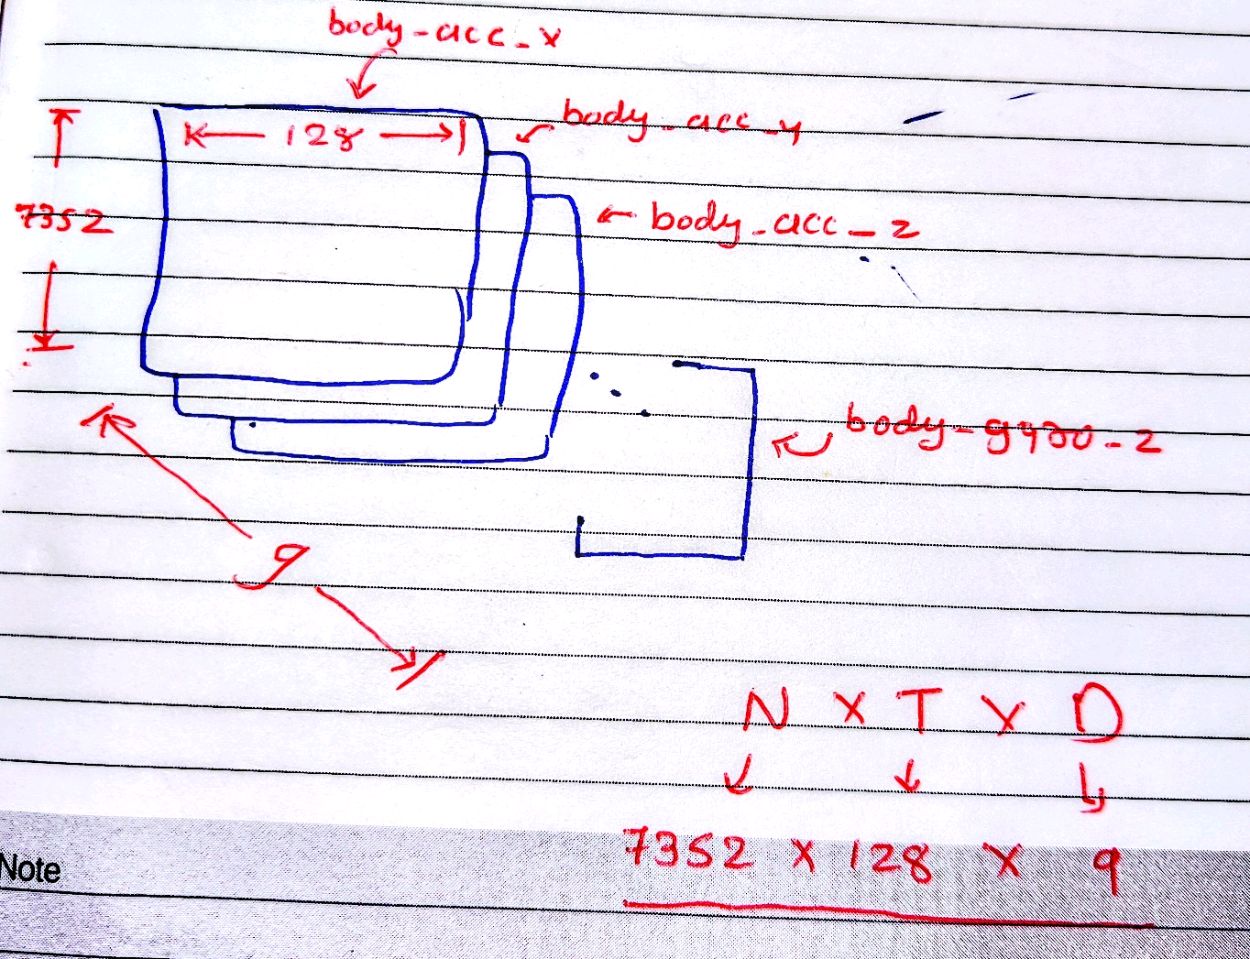 body-acc-x
128
body-acc-y
7352
body-acc-z
body-gyro-z
9
N x T x D
7352 x 128 x 9
Note